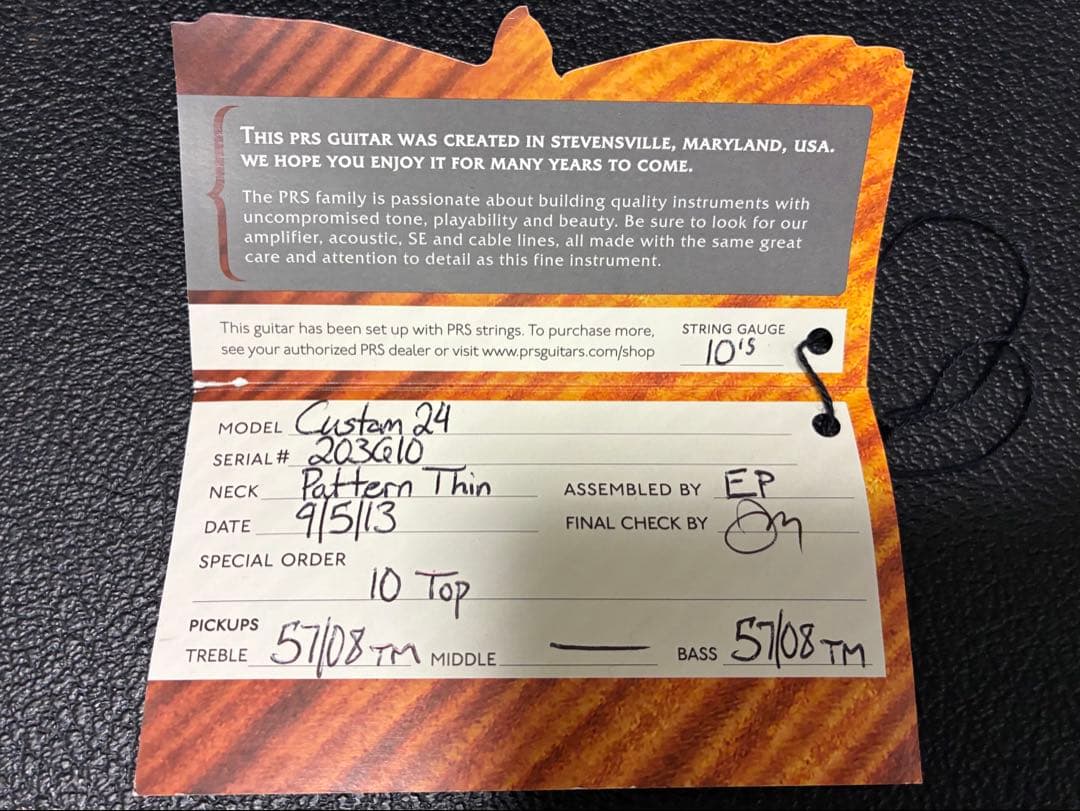 THIS PRS GUITAR WAS CREATED IN STEVENSVILLE, MARYLAND, USA.
WE HOPE YOU ENJOY IT FOR MANY YEARS TO COME.
The PRS family is passionate about building quality instruments with
uncompromised tone, playability and beauty. Be sure to look for our
amplifier, acoustic, SE and cable lines, all made with the same great
care and attention to detail as this fine instrument.
This guitar has been set up with PRS strings. To purchase more,
see your authorized PRS dealer or visit www.prsguitars.com/shop
STRING GAUGE
10's
MODEL Custom 24
SERIAL# 203610
NECK Pattern Thin
ASSEMBLED BY EP
DATE 9/5/13
FINAL CHECK BY
SPECIAL ORDER
10 Top
PICKUPS
TREBLE 57/08 TM MIDDLE — BASS 57/08 TM